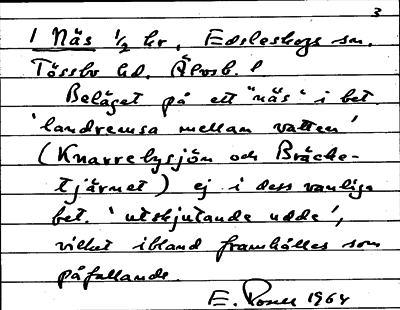 3
1 Näs 1/2 hr, Edsleskogs sn,
Tössbo hd, Älvsb. l
Beläget på ett "näs" i bet.
'landremsa mellan vatten'
(Knarrebysjön och Bräcke-
tjärnet) ej i dess vanliga
bet. 'utskjutande udde',
vilket ibland framhålles som
påfallande.
E. 1964